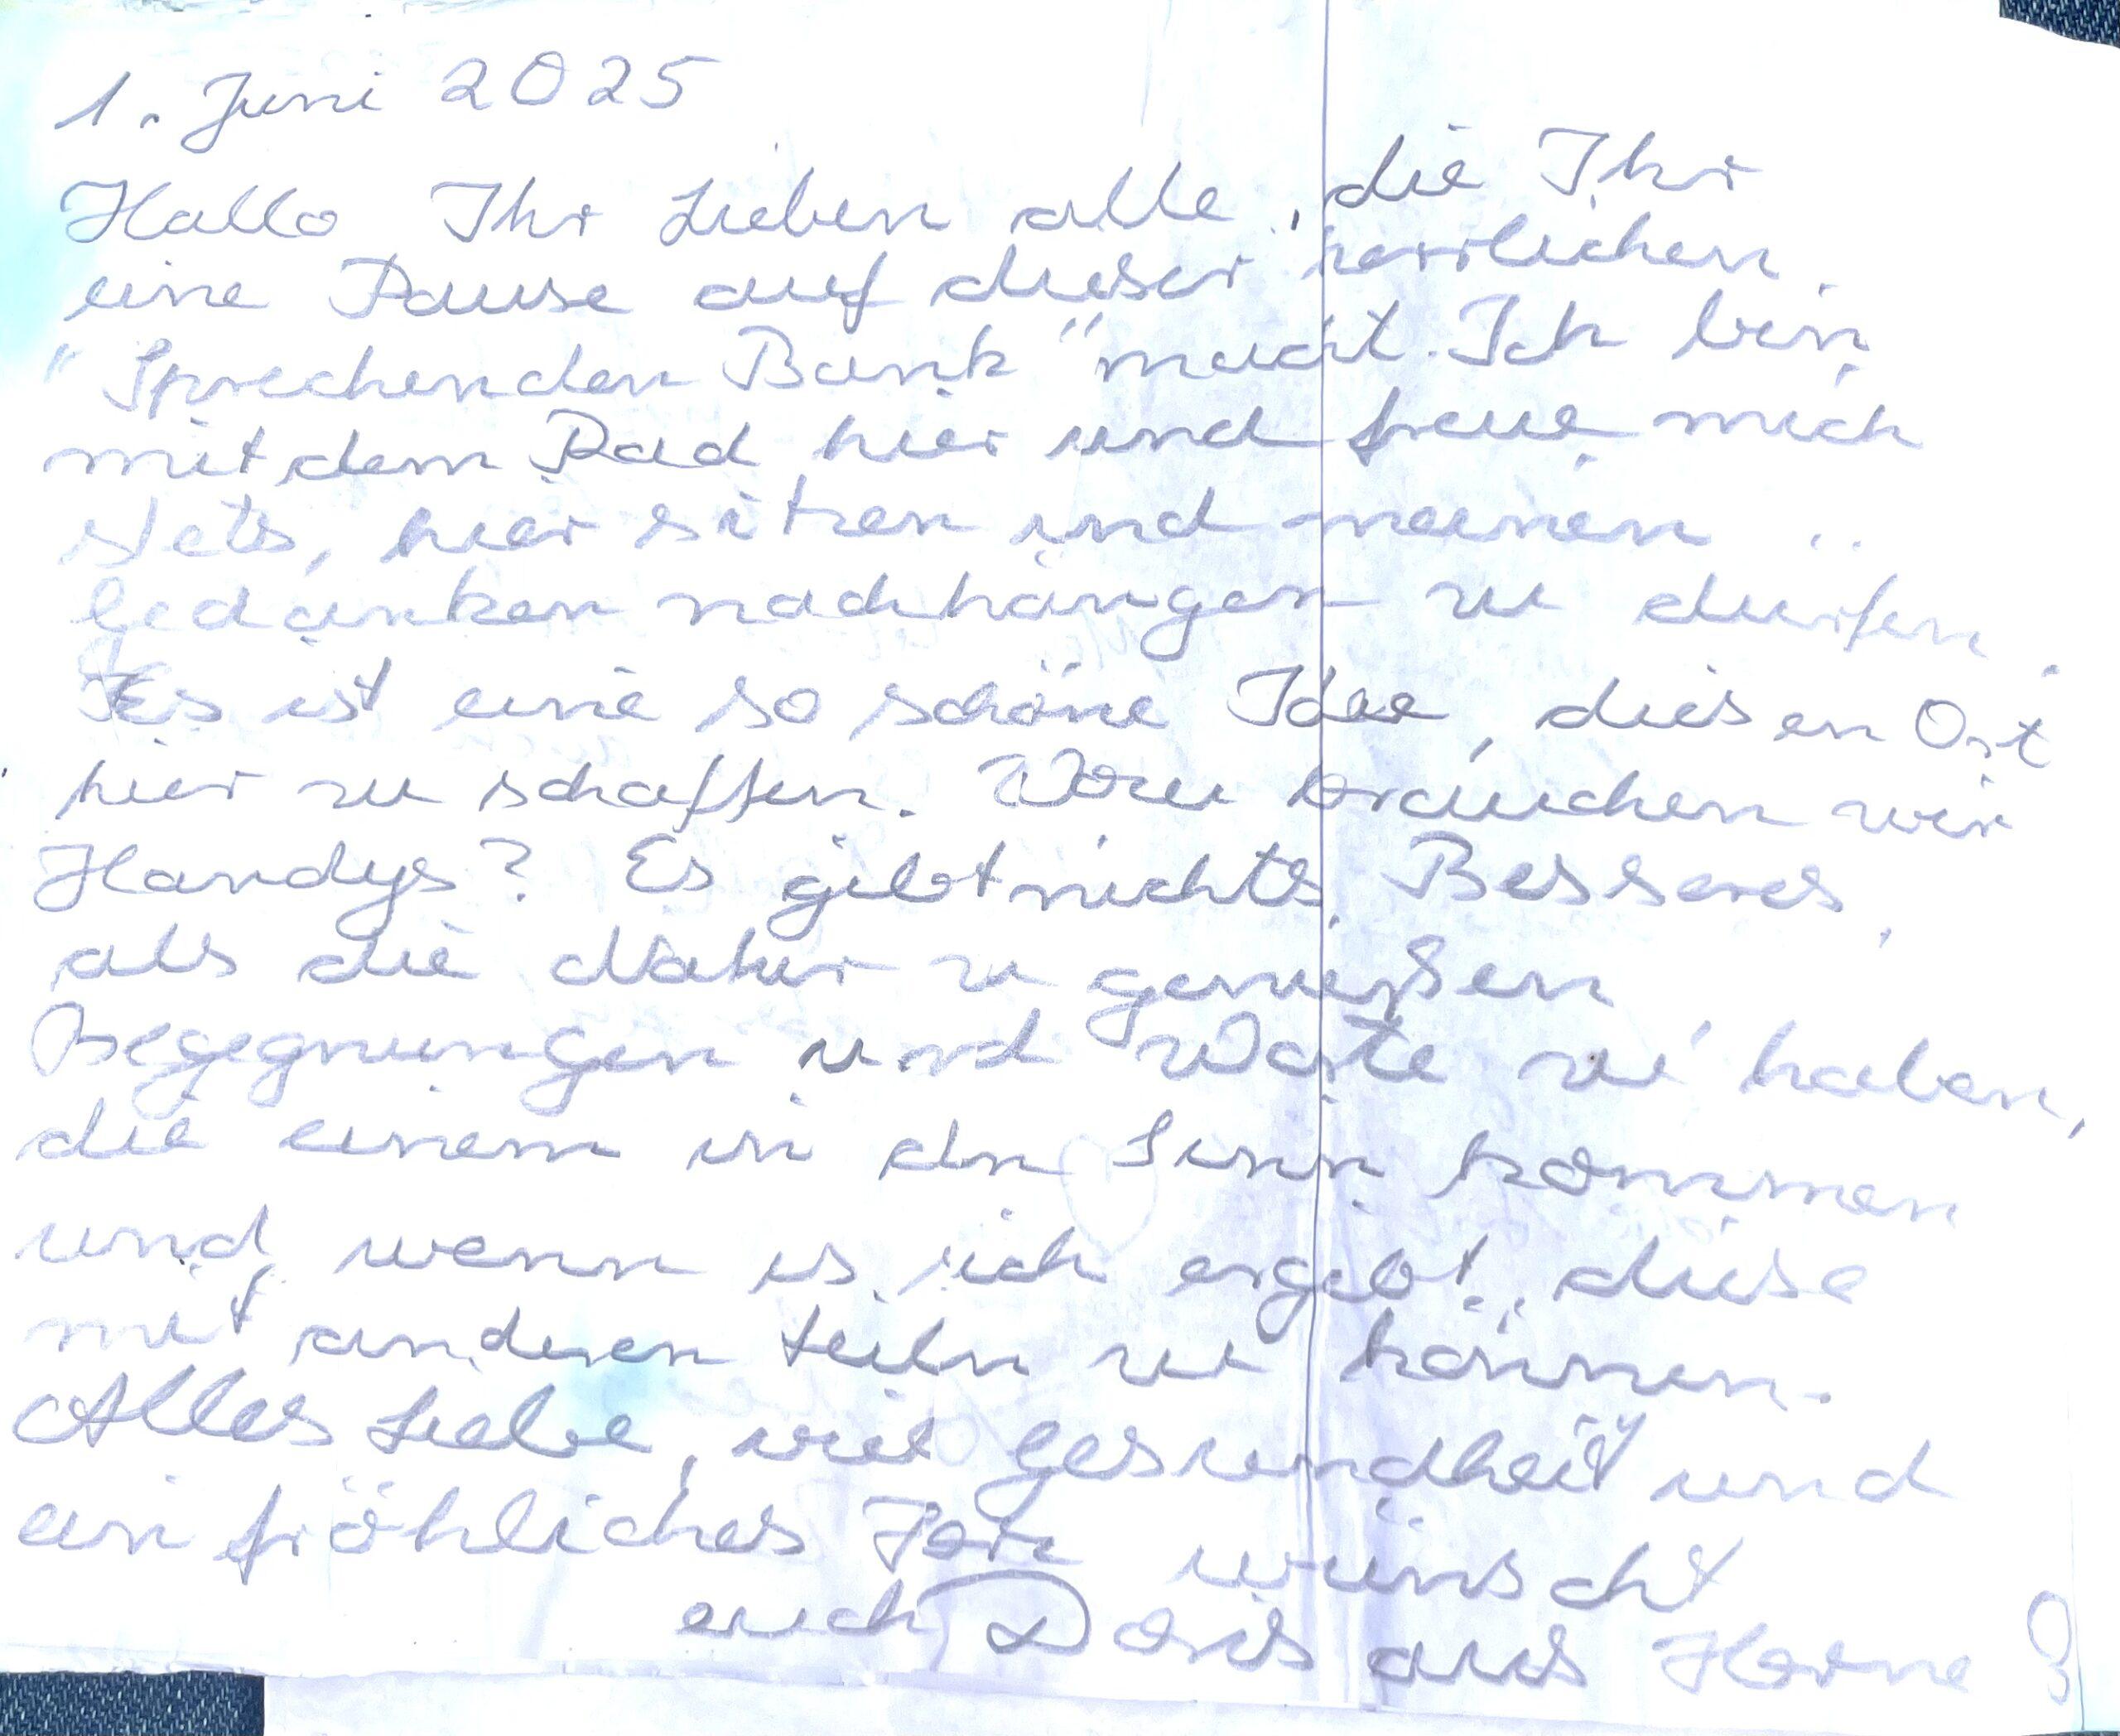 1. Juni 2025
Hallo Ihr Lieben alle, die Ihr
eine Pause auf dieser herrlichen
"Sprechenden Bank" macht. Ich bin
mit dem Rad hier und freue mich
stets, hier sitzen und meinen
Gedanken nachhängen zu dürfen.
Es ist eine so schöne Idee, diesen Ort
hier zu schaffen. Wozu brauchen wir
Handys? Es gibt nichts Besseres,
als die Natur zu genießen
Begegnungen und Worte zu haben,
die einem in den Sinn kommen
und, wenn es sich ergibt, diese
mit anderen teilen zu können.
Alles Liebe, viel Gesundheit und
ein fröhliches Herz wünscht
euch Doris aus Herne